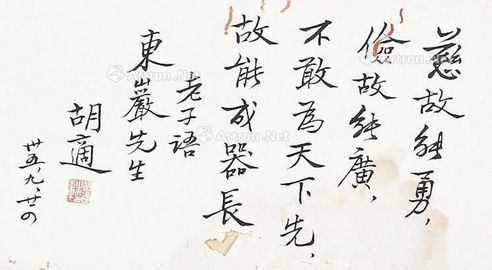 慈故能勇，
儉故能廣，
不敢為天下先，
故能成器長
老子語
東巖先生
胡適
卅五、九、廿四
Artron.Net
Artron.Net
Artron.Net
Artron.Net